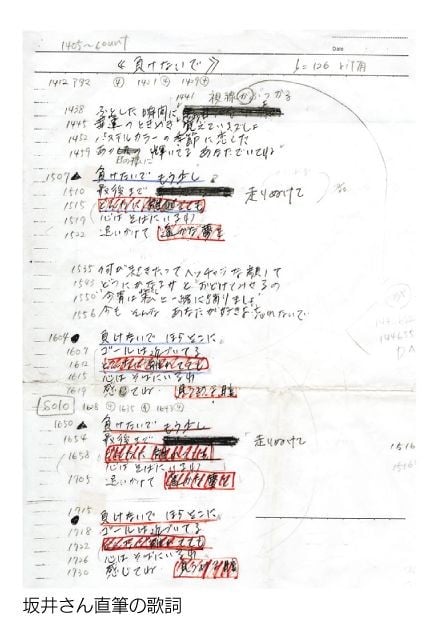 1405〜count
Date
《負けないで》 ♪= 126
1412 1421 1429
1441 視線がぶつかる
1438 ふとした瞬間に
1445 幸運のときめき 覚えているでしょ
1452 パステルカラーの季節に恋した
1459 あの日の様に 輝いてる あなたでいてね
1507 ▲ 負けないで もう少し
1510 最後まで 走りぬけて
1515 どんなに 離れてても
1519 心は そばにいるわ
1522 追いかけて 遥かな夢を
1535 何が起きたって ヘッチャラな顔して
1543 どうにかなるサと おどけてみせるの
1550 "今宵は私と一緒に踊りましょ"
1556 今も そんな あなたが好きよ 忘れないで
1604 ● 負けないで ほらそこに
1607 ゴールは近づいてる
1612 どんなに 離れてても
1615 心は そばにいるわ
1619 感じてね 見つめる瞳
solo 1628 1635 1643
1650 ▲ 負けないで もう少し
1654 最後まで 走りぬけて
1658 どんなに 離れてても
心は そばにいるわ
1705 追いかけて 遥かな夢を
1715 ● 負けないで ほらそこに
1718 ゴールは近づいてる
1722 どんなに 離れてても
1726 心は そばにいるわ
1730 感じてね 見つめる瞳
1516
坂井さん直筆の歌詞